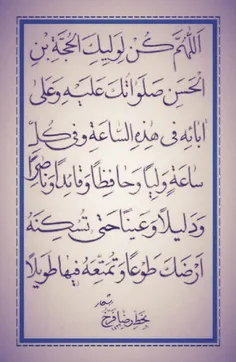 اَللّٰهُمَّ كُنْ لِوَلِيِّكَ الْحُجَّةِ بْنِ
الْحَسَنِ صَلَوَاتُكَ عَلَيْهِ وَعَلىٰ
ابَائِهِ فِى هٰذِهِ السَّاعَةِ وَفِى كُلِّ
سَاعَةٍ وَلِيًّا وَحَافِظًا وَقَائِدًا وَنَاصِرًا
وَدَلِيلًا وَعَيْنًا حَتّٰى تُسْكِنَهُ
اَرْضَكَ طَوْعًا وَتُمَتِّعَهُ فِيهَا طَوِيلًا